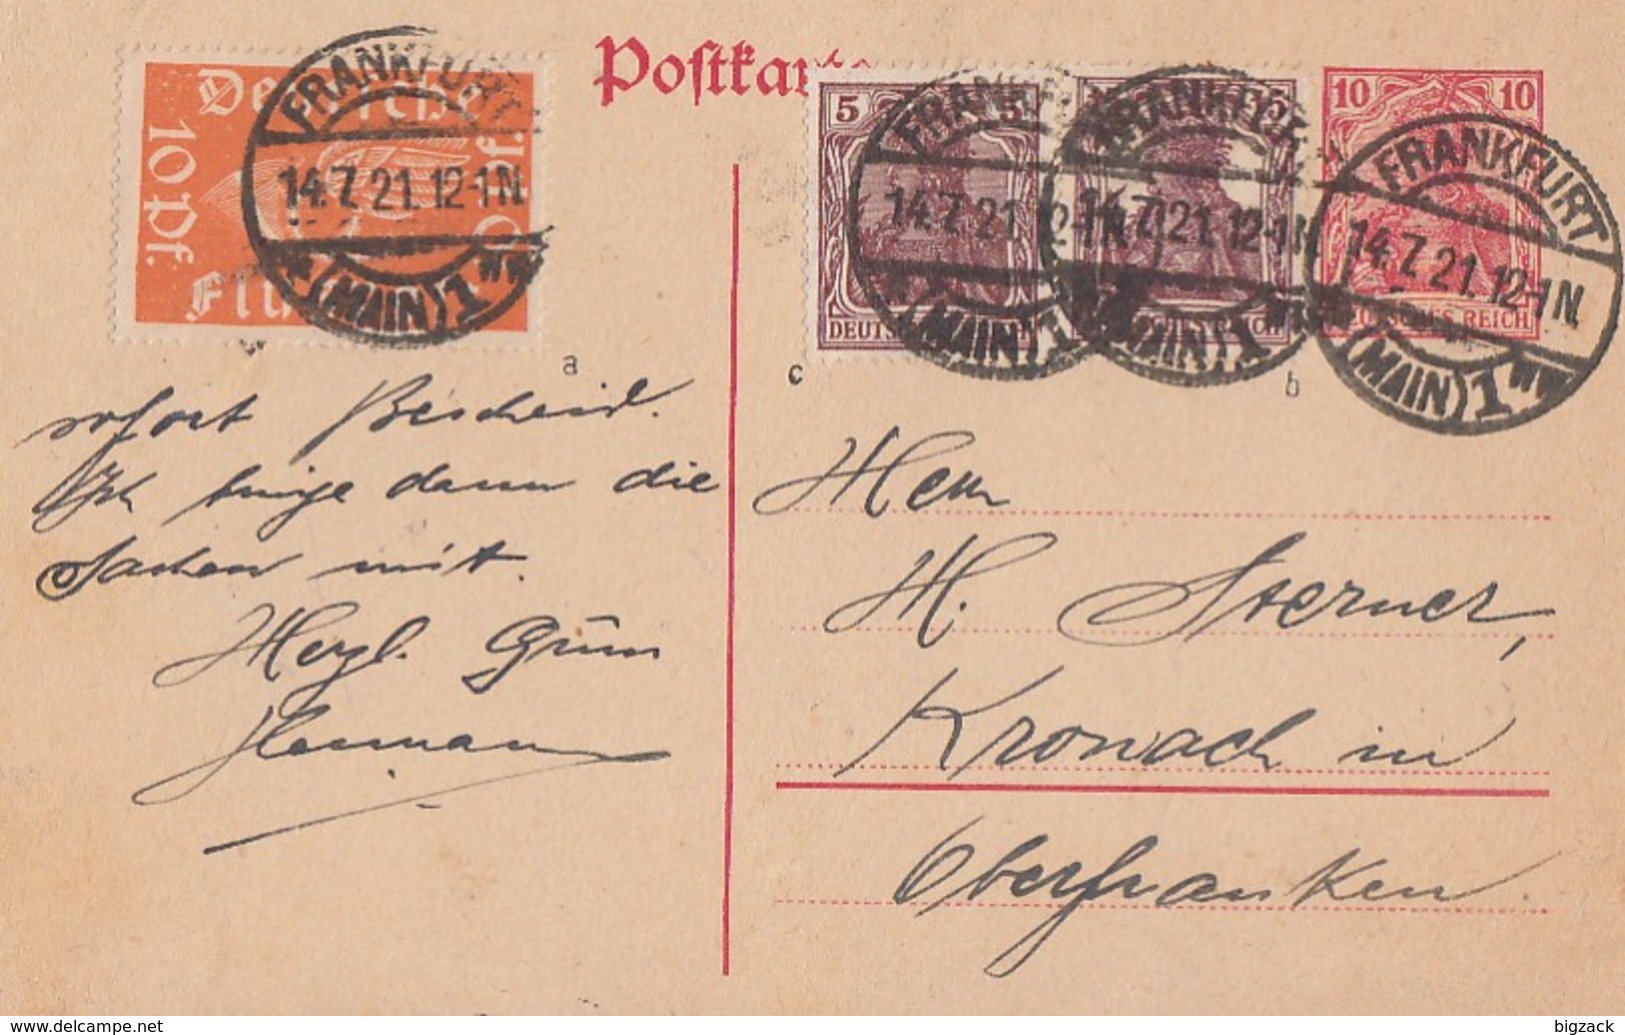 Postkarte
Deutsche
10 Pf.
10 Pf.
Flu
FRANKFURT
14.7.21.12-1N.
(MAIN) 1 **
5 5
DEUTSCHES REICH
FRANKFURT
14.7.21.12-1N.
(MAIN) 1
DEUTSCHES REICH
FRANKFURT
14.7.21.12-1N.
(MAIN) 1 **
10 10
DEUTSCHES REICH
FRANKFURT
14.7.21.12-1N.
(MAIN) 1 **
a
c
b
sofort Bescheid.
Ich bringe dann die
Sachen mit.
Herzl. Gruss
Herrn
H. Sterner,
Kronach in
Oberfranken.
www.delcampe.net
bigzack